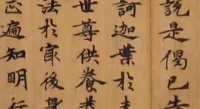 說是偈已告
訶迦葉於未
世尊供養恭
法於冣後身
正遍知明行